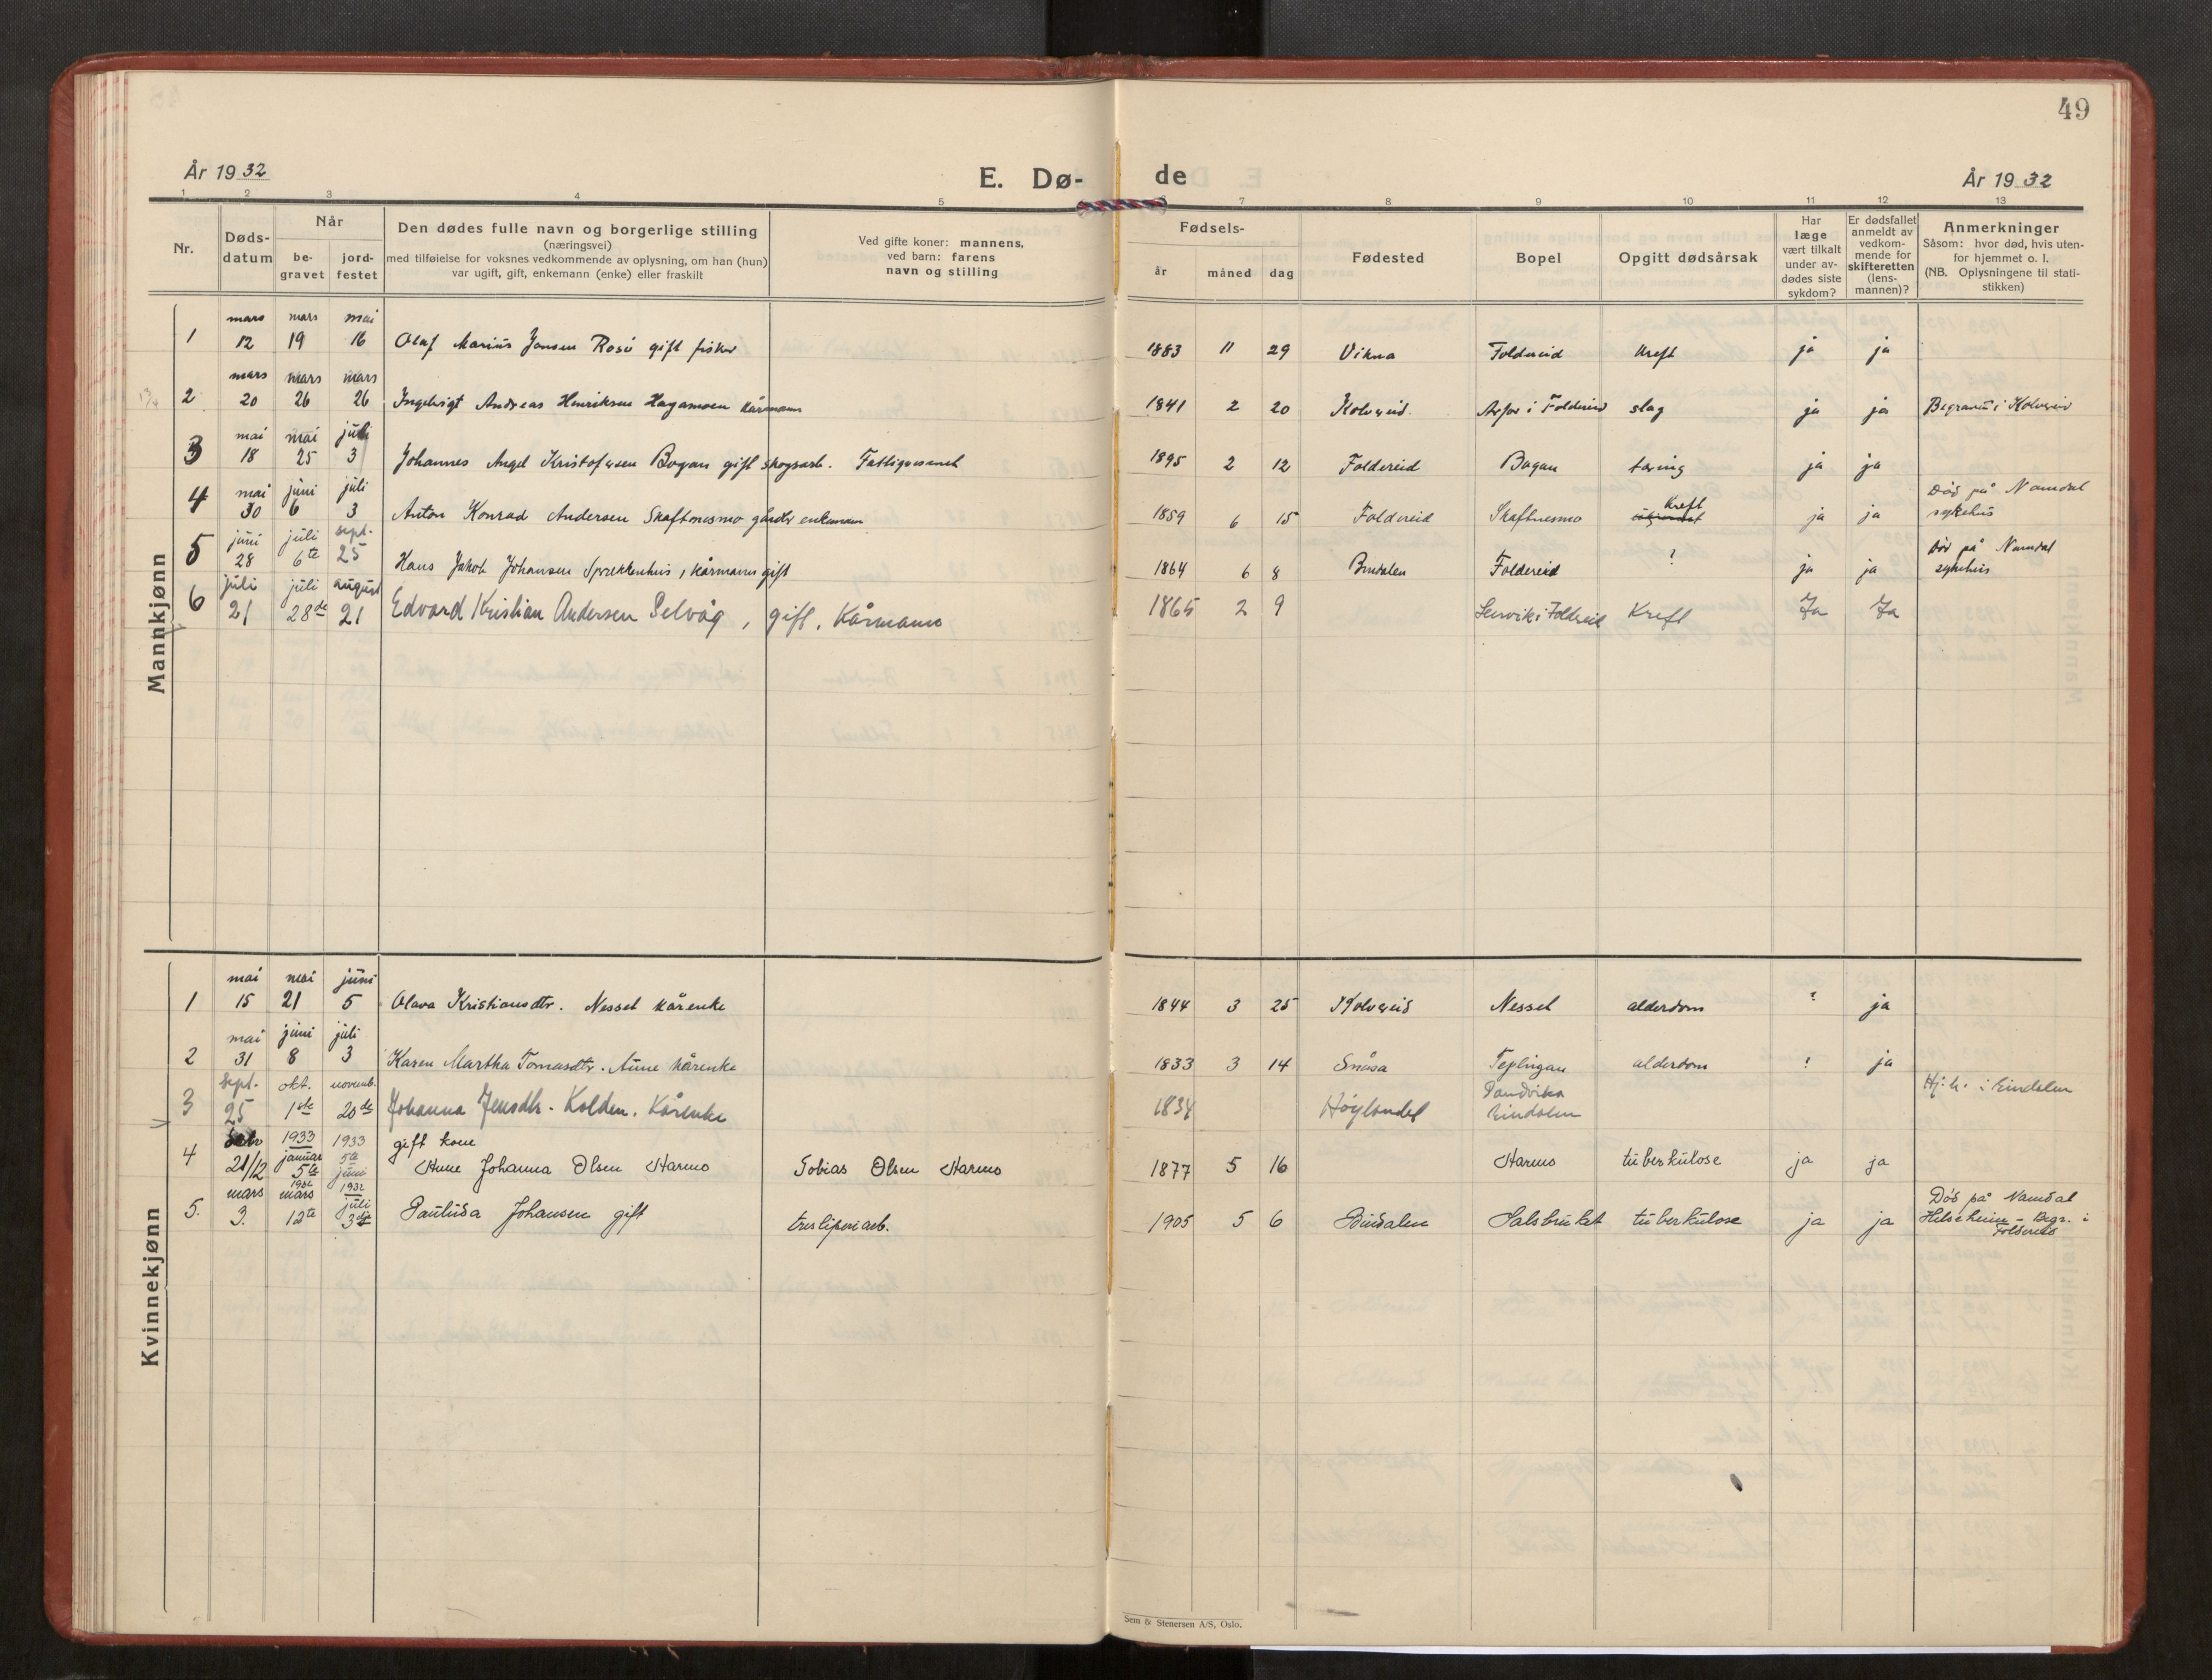 49
År 1932
E. Dø-
de
År 1932
1 2 3 4 5 6 7 8 9 10 11 12 13
Nr.
Døds-
datum
Når
be-
gravet
jord-
festet
Den dødes fulle navn og borgerlige stilling
(næringsvei)
med tilføielse for voksnes vedkommende av oplysning, om han (hun)
var ugift, gift, enkemann (enke) eller fraskilt
Ved gifte koner: mannens,
ved barn: farens
navn og stilling
Fødsels-
år
måned
dag
Fødested
Bopel
Opgitt dødsårsak
Har
læge
vært tilkalt
under av-
dødes siste
sykdom?
Er dødsfallet
anmeldt av
vedkom-
mende for
skifteretten
(lens-
mannen)?
Anmerkninger
Såsom: hvor død, hvis uten-
for hjemmet o. l.
(NB. Oplysningene til stati-
stikken)
Mannkjønn
mars mars mai
1 12 19 16 Olaf Marius Jensen Rosö gift fisker 1883 11 29 Vikna Foldereid Kreft ja ja
mars mars mars
2 20 26 26 Ingebrigt Andreas Henriksen Hagamoen kårmann 1841 2 20 Kolvereid Arfor i Foldereid slag ja ja Begravet i Kolvereid
mai mai juli
3 18 25 3 Johannes Angel Kristofersen Bogan gift skogsarb. Fattigvesenet 1895 2 12 Foldereid Bogan tæring ja ja
mai juni juli Kreft Død på Namdal
4 30 6 3 Anton Konrad Andersen Skaftnesmo gårdbr enkemann 1859 6 15 Foldereid Skaftnesmo ja ja sykehus
juni juli sept. Död på Namdal
5 28 6te 25 Hans Jakob Johansen Sprekkenhus, kårmann gift 1864 6 8 Bindalen Foldereid ? ja ja sykehus
juli juli august
6 21 28de 21 Edvard Kristian Andersen Selvåg, gift, Kårmann 1865 2 9 i Foldreid Kreft Ja Ja
Kvinnekjønn
mai mai juni
1 15 21 5 Olava Kristiansdtr. Nesset kårenke 1844 3 25 Kolvereid Nesset alderdom ? ja
mai juni juli
2 31 8 3 Karen Martha Tomasdtr. Aune kårenke 1833 3 14 Snåsa Teplingan alderdom ? ja
sept. okt. novemb. Sandvika Hj.h. i Eindalen
3 25 1ste 20de Johanna Jensdtr. Kolden. Kårenke 1834 Höylandet Eindalen
1933 1933 gift kone
4 21/12 januar 5te 5te juni Anne Johanna Olsen Harmo Tobias Olsen Harmo 1877 5 16 Harmo tuberkulose ja ja
mars 1932 mars 1932 juli Död på Namdal
5. 3. 12te 3dje Paulusa Johansen gift tresliperiarb. 1905 5 6 Bindalen Salsbruket tuberkulose ja ja Helseheim - Begr. i
Foldereid
Sem & Stenersen A/S, Oslo.